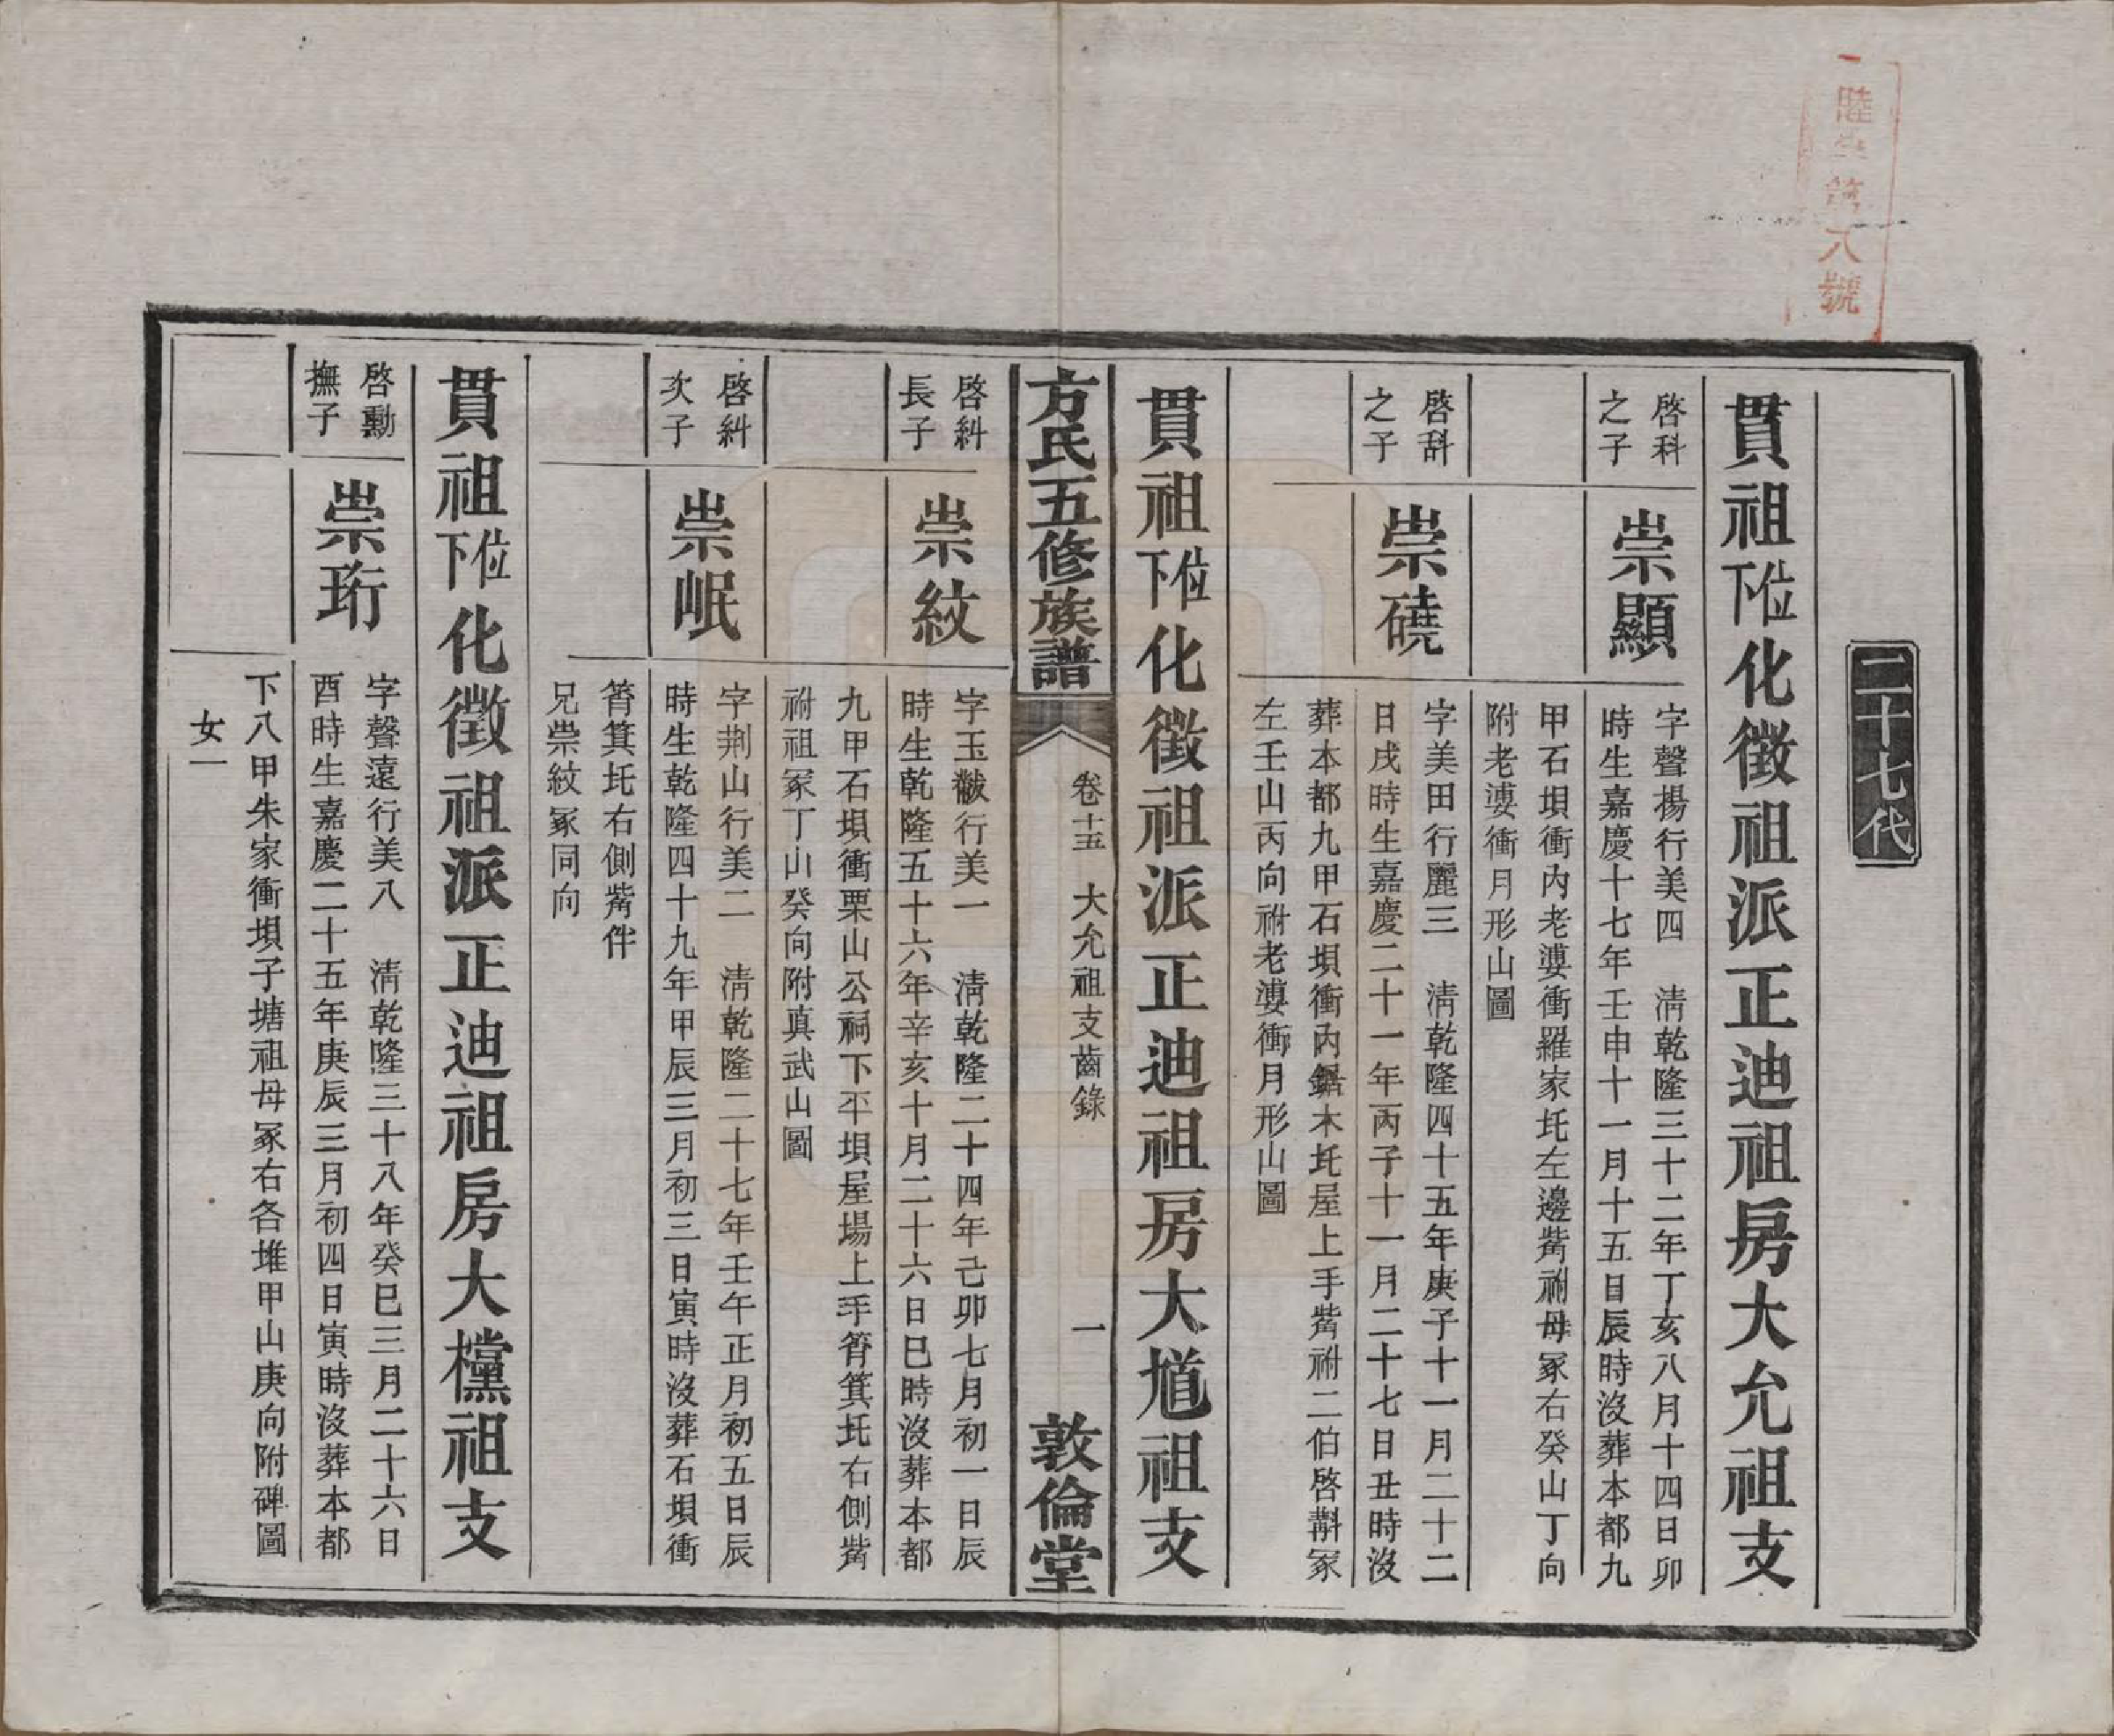 二十七代
貫祖位下化徵祖派正迪祖房大允祖支
啓科之子
崇顯
字聲揚行美四　淸乾隆三十二年丁亥八月十四日卯
時生嘉慶十七年壬申十一月十五日辰時沒葬本都九
甲石埧衝內老婆衝羅家圫左邊觜祔母冢右癸山丁向
附老婆衝月形山圖
啓㪵之子
崇磽
字美田行麗三　淸乾隆四十五年庚子十一月二十二
日戌時生嘉慶二十一年丙子十一月二十七日丑時沒
葬本都九甲石埧衝內鋸木圫屋上手觜祔二伯啓斠冢
左壬山丙向祔老婆衝月形山圖
貫祖位下化徵祖派正迪祖房大馗祖支
方氏五修族譜
卷十五　大允祖支齒錄
一
敦倫堂
啓糾長子
崇紋
字玉黻行美一　淸乾隆二十四年己卯七月初一日辰
時生乾隆五十六年辛亥十月二十六日巳時沒葬本都
九甲石埧衝栗山公祠下平埧屋場上手筲箕圫右側觜
祔祖冢丁山癸向附真武山圖
啓糾次子
崇岷
字荆山行美二　淸乾隆二十七年壬午正月初五日辰
時生乾隆四十九年甲辰三月初三日寅時沒葬石埧衝
筲箕圫右側觜伴
兄崇紋冢同向
貫祖位下化徵祖派正迪祖房大欓祖支
啓勳撫子
崇珩
字聲遠行美八　淸乾隆三十八年癸巳三月二十六日
酉時生嘉慶二十五年庚辰三月初四日寅時沒葬本都
下八甲朱家衝埧子塘祖母冢右各堆甲山庚向附碑圖
女一
號